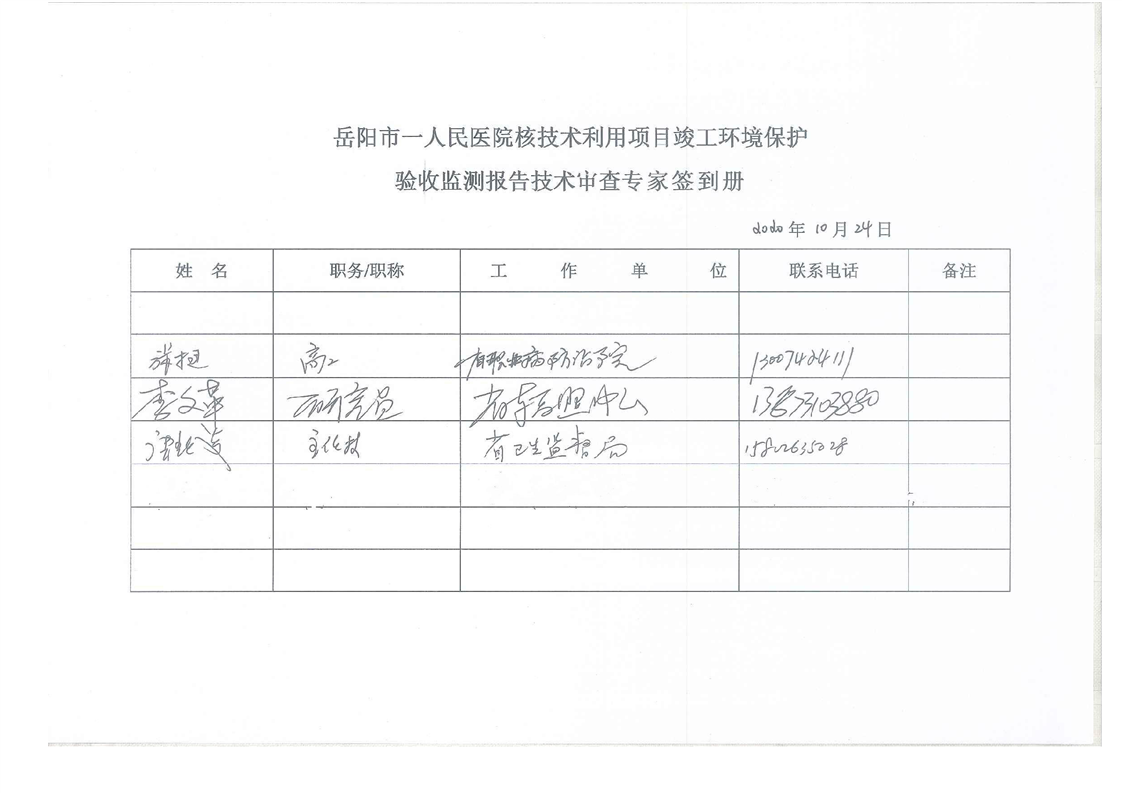 岳阳市一人民医院核技术利用项目竣工环境保护
验收监测报告技术审查专家签到册
2020年10月24日
姓 名 职务/职称 工 作 单 位 联系电话 备注
高工 省职业病防治学院 13007424111
李文革 研究员 13873103880
省卫生监督局